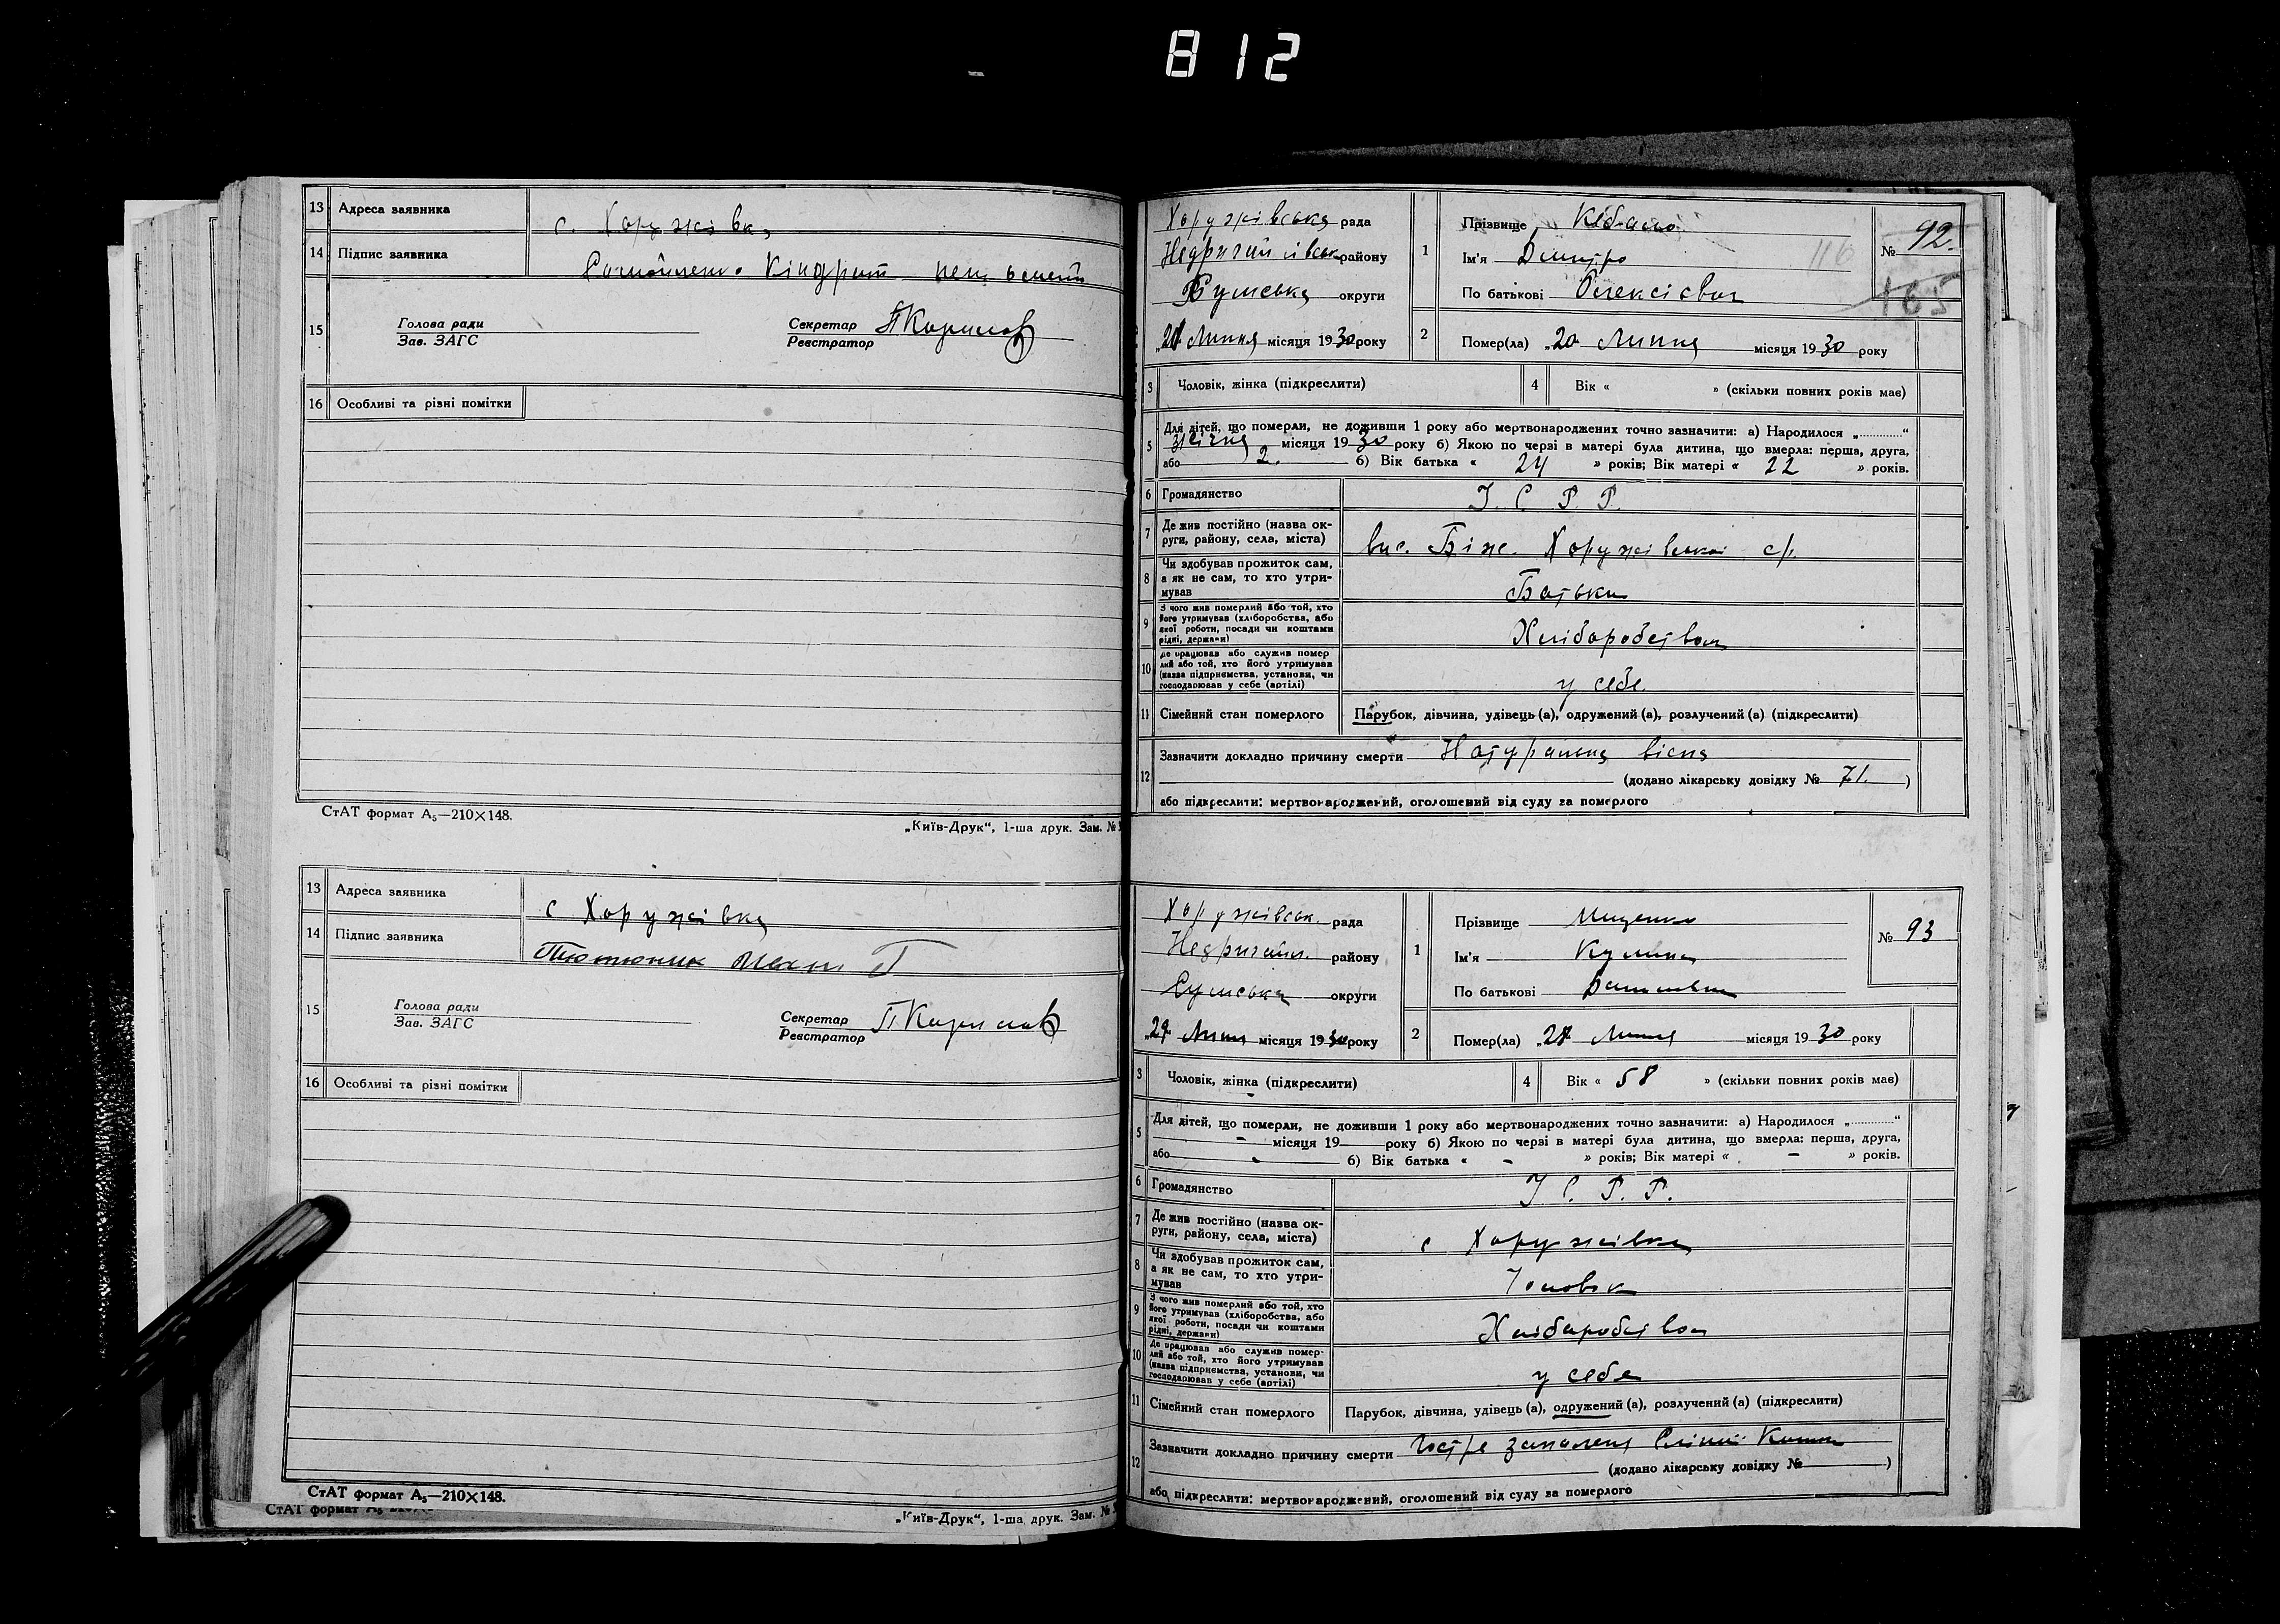 812
13 Адреса заявника с. Хоружівка
14 Підпис заявника Кіндрат
15 Голова ради
Зав. ЗАГС
Секретар
Реєстратор
16 Особливі та різні помітки
СтАТ формат А₅—210×148.
„Київ-Друк“, 1-ша друк. Зам. №
13 Адреса заявника с Хоружівка
14 Підпис заявника Тютюник
15 Голова ради
Зав. ЗАГС
Секретар
Реєстратор
16 Особливі та різні помітки
СтАТ формат А₅—210×148.
СтАТ формат А₅
„Київ-Друк“, 1-ша друк. Зам. №
Хоружівська рада
району
Сумська округи
Липня місяця 1930 року
1 Прізвище
Ім'я Дмитро
По батькові Олексієвич
№ 92.
116
165
2 Помер(ла) „20 Липня місяця 1930 року
3 Чоловік, жінка (підкреслити)
4 Вік « » (скільки повних років має)
5 Для дітей, що померли, не доживши 1 року або мертвонароджених точно зазначити: а) Народилося „............“
січня місяця 1930 року б) Якою по черзі в матері була дитина, що вмерла: перша, друга,
або 2. б) Вік батька « 24 » років; Вік матері « 22 » років.
6 Громадянство У. С. Р. Р.
7 Де жив постійно (назва ок-
руги, району, села, міста) вис. Біж. Хоружівської с/р.
8 Чи здобував прожиток сам,
а як не сам, то хто утри-
мував Батьки
9 З чого жив померлий або той, хто
його утримував (хліборобства, або
якої роботи, посади чи коштами
рідні, держави) Хліборобством
10 Де працював або служив помер
лий або той, хто його утримував
(назва підприємства, установи, чи
господарював у себе (артілі) у себе.
11 Сімейний стан померлого Парубок, дівчина, удівець (а), одружений (а), розлучений (а) (підкреслити)
12 Зазначити докладно причину смерти Натуральна віспа
(додано лікарську довідку № 71. )
або підкреслити: мертвонароджений, оголошений від суду за померлого
Хоружівськ. рада
Недригайл. району
Сумська округи
„29 Липня місяця 1930 року
1 Прізвище Мищенко
Ім'я Кулина
По батькові
№ 93
2 Помер(ла) Липня місяця 1930 року
3 Чоловік, жінка (підкреслити)
4 Вік « 58 » (скільки повних років має)
5 Для дітей, що померли, не доживши 1 року або мертвонароджених точно зазначити: а) Народилося „............“
— місяця 19 року б) Якою по черзі в матері була дитина, що вмерла: перша, друга,
або - б) Вік батька « - » років; Вік матері « — » років.
6 Громадянство У С. Р. Р.
7 Де жив постійно (назва ок-
руги, району, села, міста) с Хоружівка
8 Чи здобував прожиток сам,
а як не сам, то хто утри-
мував Чоловік
9 З чого жив померлий або той, хто
його утримував (хліборобства, або
якої роботи, посади чи коштами
рідні, держави) Хліборобством
10 Де працював або служив помер-
лий або той, хто його утримував
(назва підприємства, установи, чи
господарював у себе (артілі) у себе
11 Сімейний стан померлого Парубок, дівчина, удівець (а), одружений (а), розлучений (а) (підкреслити)
12 Зазначити докладно причину смерти Гостре запалення Сліпої Кишки
(додано лікарську довідку № )
або підкреслити: мертвонароджений, оголошений від суду за померлого